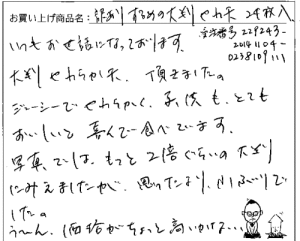 お買い上げ商品名：訳あり するめの大判 やわ天 24枚入
注番号 229243-
20141104-
0238109111
いつもお世話になっております。
大判 やわらか天、頂きました。
ジューシーで やわらかく、子供も、とても
おいしいと 喜んで食べています。
写真では、もっと 2倍ぐらいの 大判
にみえましたが、思ったより、小ぶりで
した。
う〜ん、価格がちょっと高いかな…